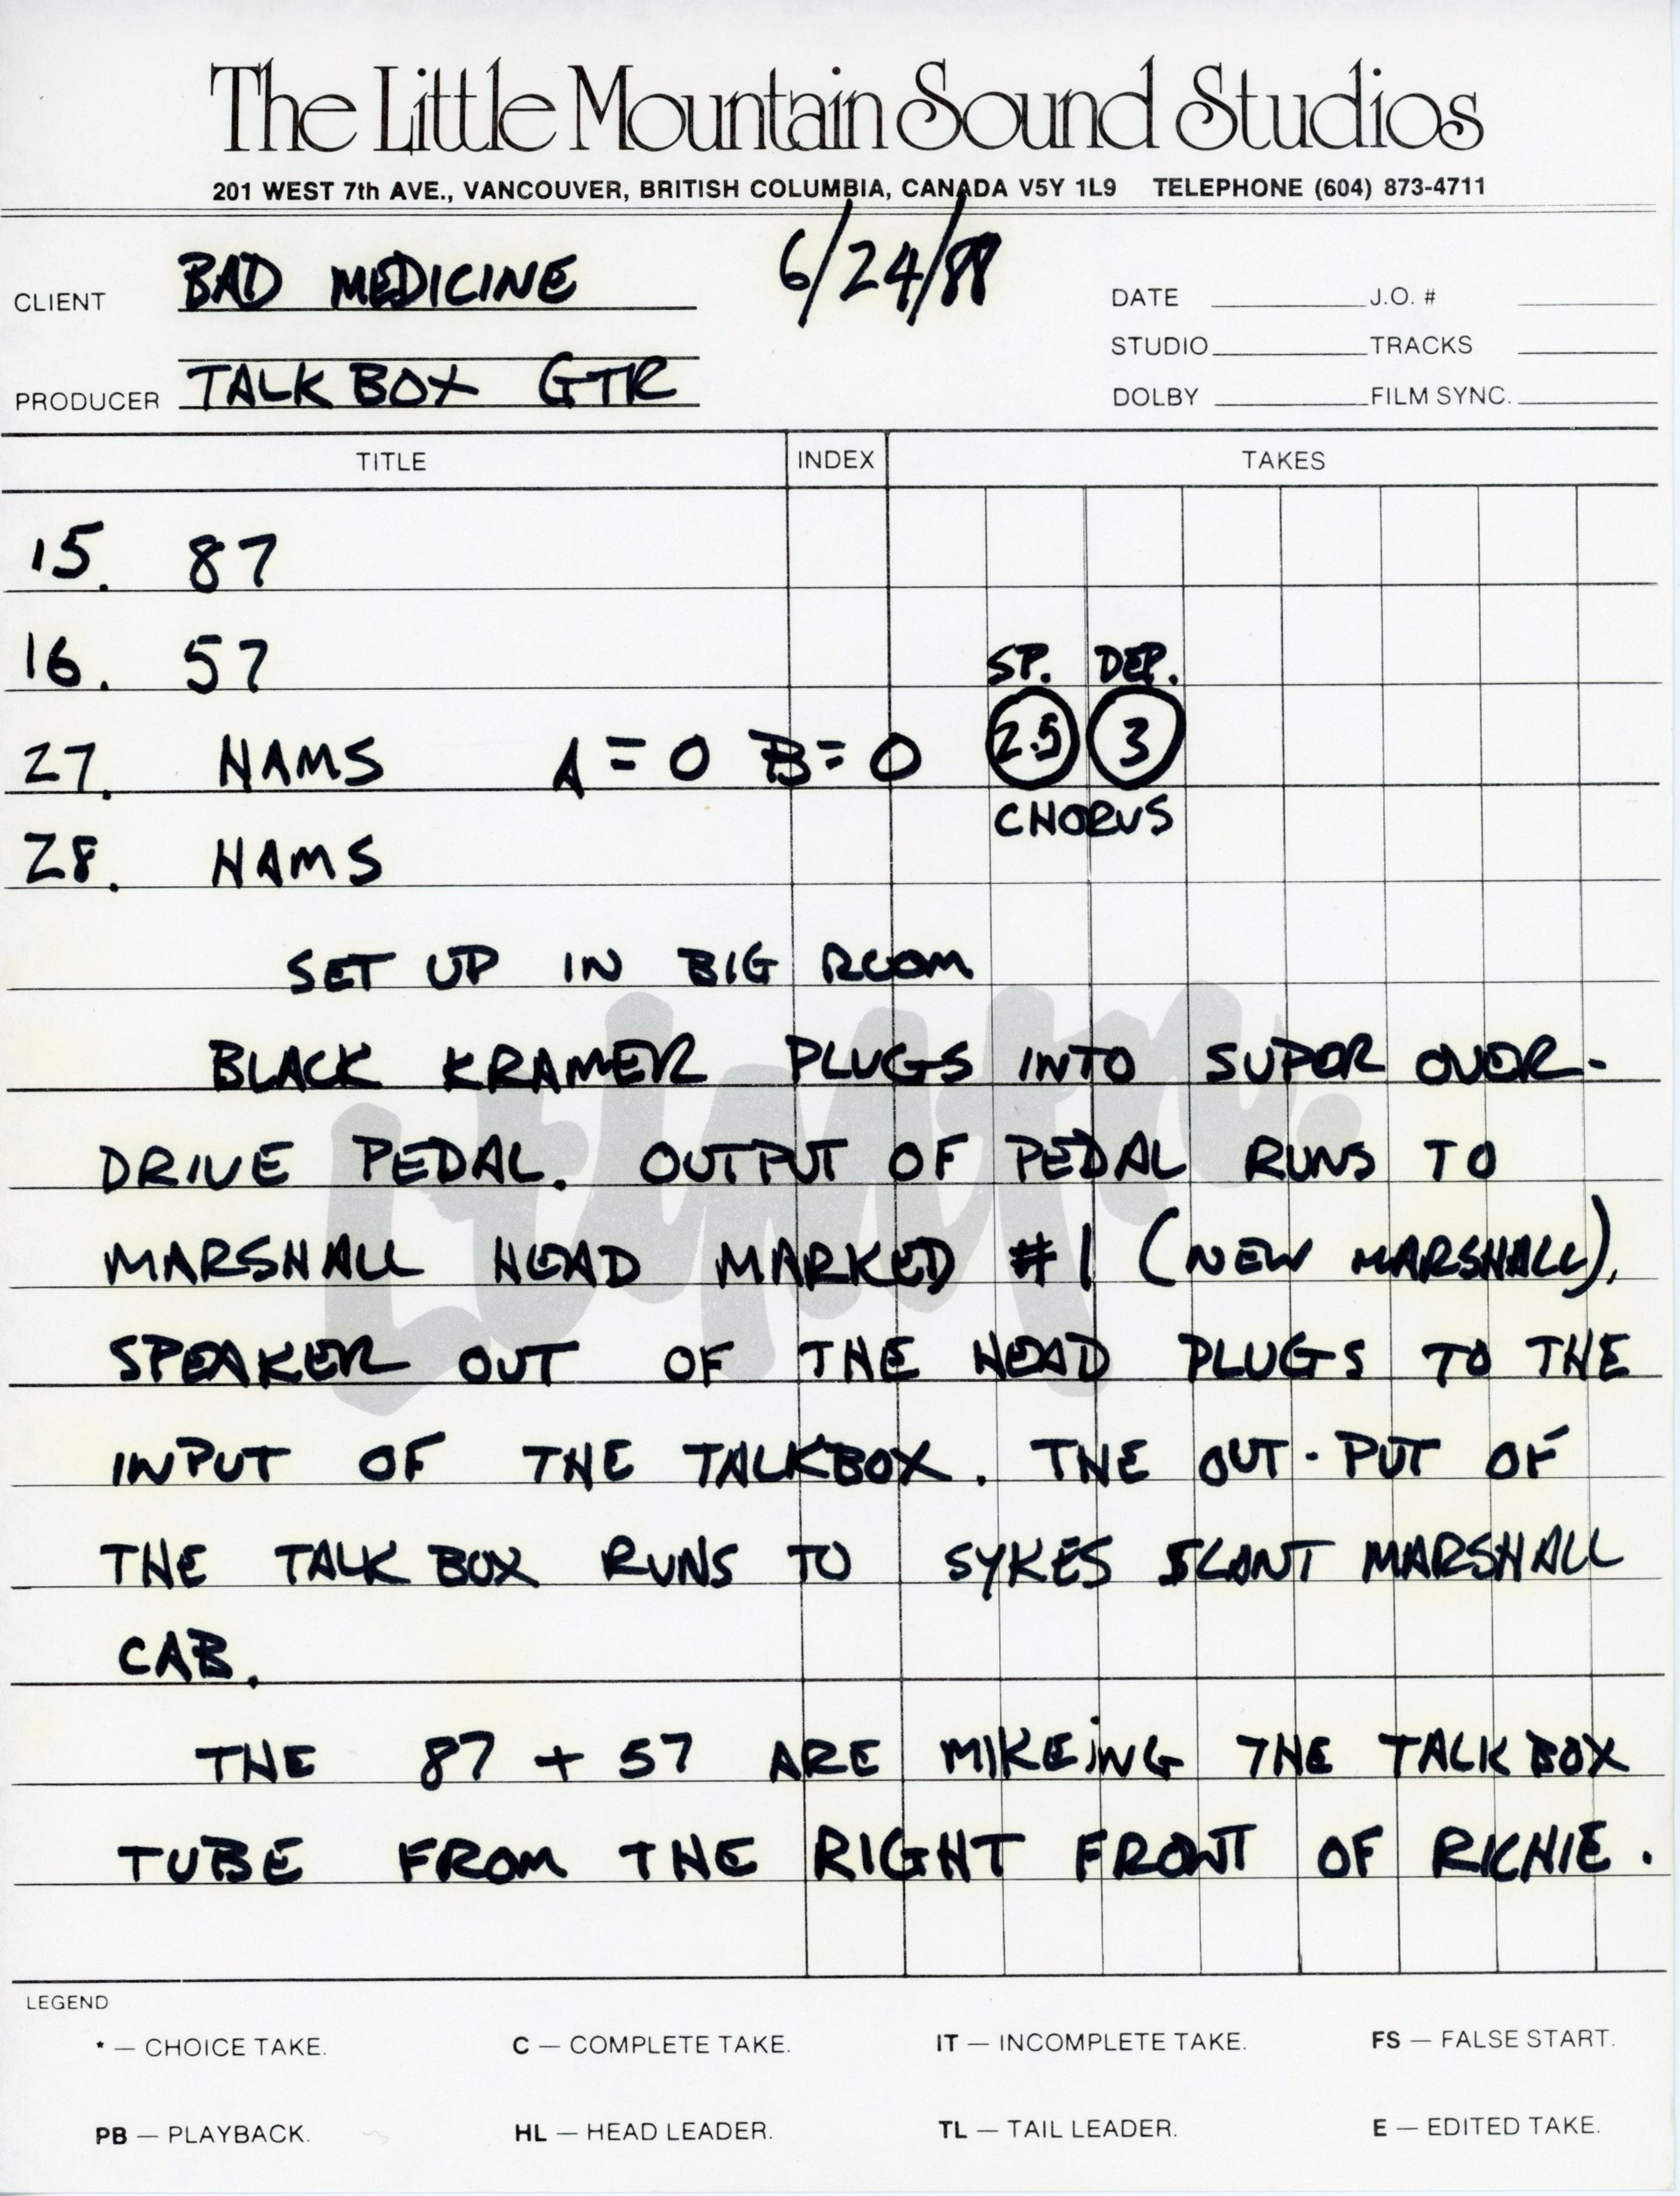 The Little Mountain Sound Studios
201 WEST 7th AVE., VANCOUVER, BRITISH COLUMBIA, CANADA V5Y 1L9 TELEPHONE (604) 873-4711
CLIENT BAD MEDICINE 6/24/88 DATE J.O. #
STUDIO TRACKS
PRODUCER TALK BOX GTR DOLBY FILM SYNC.
TITLE INDEX TAKES
15. 87
16. 57 SP. DEP.
27. HAMS A = 0 B = 0 2.5 3
CHORUS
28. HAMS
SET UP IN BIG ROOM
BLACK KRAMER PLUGS INTO SUPER OVER-
DRIVE PEDAL. OUTPUT OF PEDAL RUNS TO
MARSHALL HEAD MARKED #1 (NEW MARSHALL).
SPEAKER OUT OF THE HEAD PLUGS TO THE
INPUT OF THE TALKBOX. THE OUT-PUT OF
THE TALK BOX RUNS TO SYKES SLANT MARSHALL
CAB.
THE 87 + 57 ARE MIKEING THE TALK BOX
TUBE FROM THE RIGHT FRONT OF RICHIE.
LEGEND
* — CHOICE TAKE. C — COMPLETE TAKE. IT — INCOMPLETE TAKE. FS — FALSE START.
PB — PLAYBACK. HL — HEAD LEADER. TL — TAIL LEADER. E — EDITED TAKE.